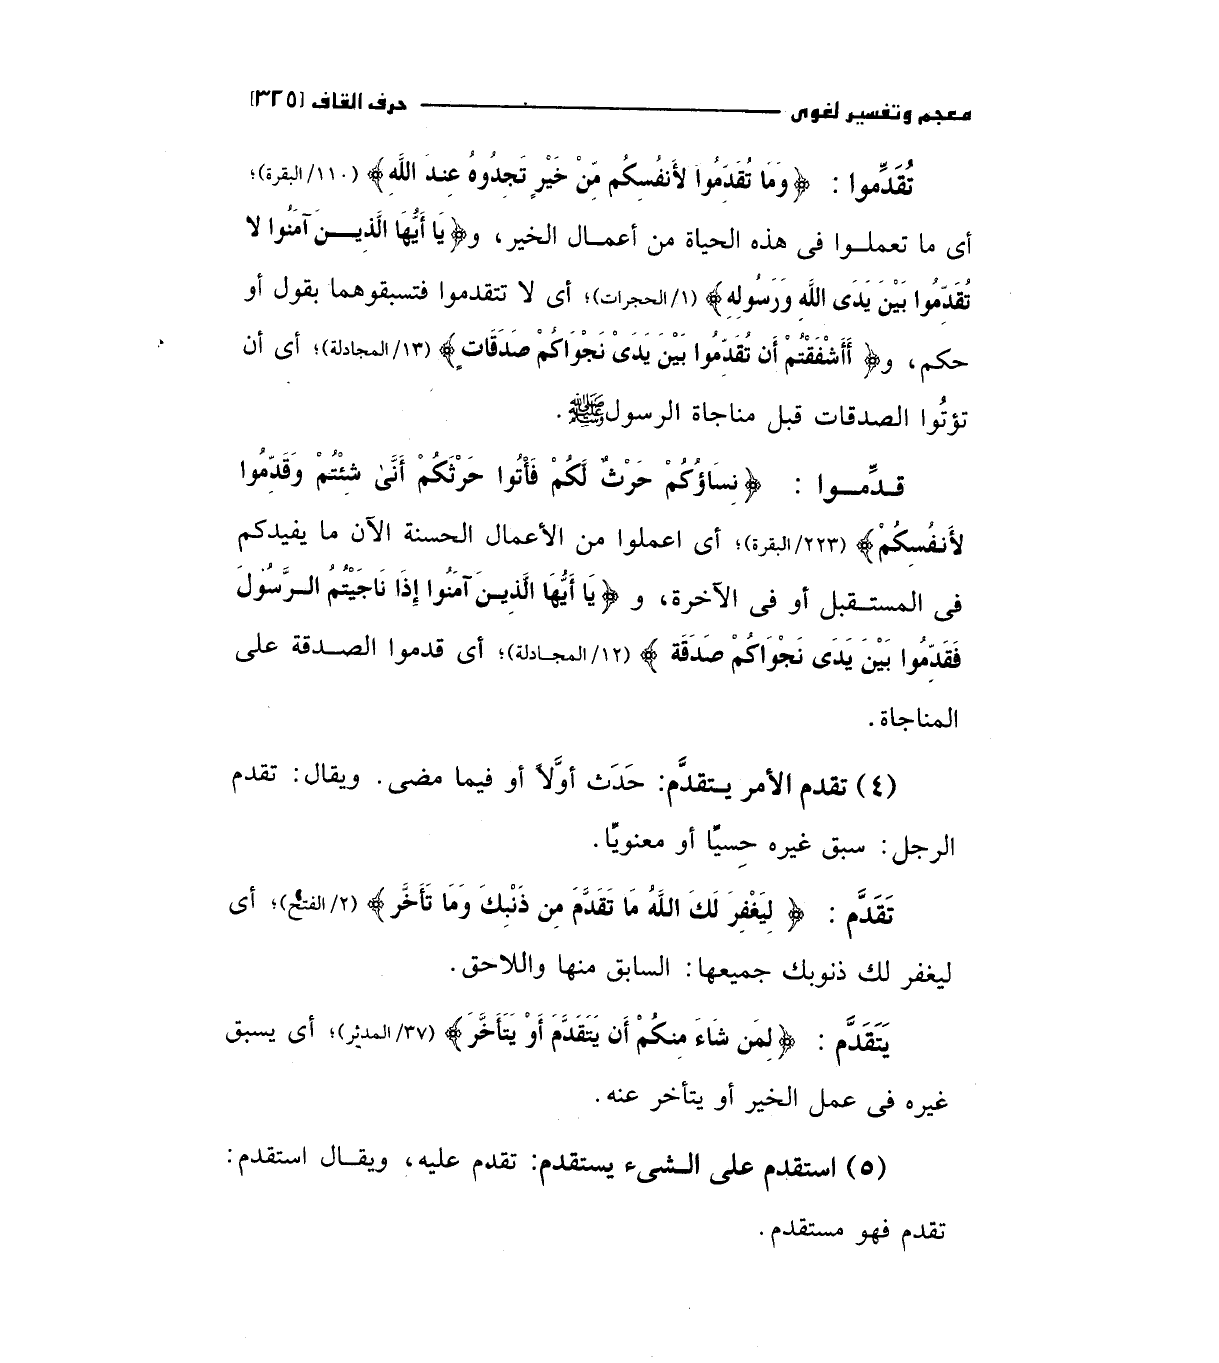 معجم وتفسير لغوى ــــــــ حرف القاف [٣٢٥]
تُقَدِّموا : ﴿وَمَا تُقَدِّمُوا لأَنفُسِكُم مِّنْ خَيْرٍ تَجِدُوهُ عِندَ اللَّهِ﴾ (١١٠/البقرة)؛
أى ما تعملــوا فى هذه الحياة من أعمــال الخير، و﴿يَا أَيُّهَا الَّذِيــنَ آمَنُوا لا
تُقَدِّمُوا بَيْنَ يَدَى اللَّهِ وَرَسُولِهِ﴾ (١/الحجرات)؛ أى لا تتقدموا فتسبقوهما بقول أو
حكم، و﴿أَأَشْفَقْتُمْ أَن تُقَدِّمُوا بَيْنَ يَدَىْ نَجْوَاكُمْ صَدَقَاتٍ﴾ (١٣/المجادلة)؛ أى أن
تؤتُوا الصدقات قبل مناجاة الرسول ﷺ.
قــدِّمـــوا : ﴿نِسَاؤُكُمْ حَرْثٌ لَّكُمْ فَأْتُوا حَرْثَكُمْ أَنَّىٰ شِئْتُمْ وَقَدِّمُوا
لأَنفُسِكُمْ﴾ (٢٢٣/البقرة)؛ أى اعملوا من الأعمال الحسنة الآن ما يفيدكم
فى المستــقبل أو فى الآخرة، و ﴿يَا أَيُّهَا الَّذِينَ آمَنُوا إِذَا نَاجَيْتُمُ الــرَّسُولَ
فَقَدِّمُوا بَيْنَ يَدَى نَجْوَاكُمْ صَدَقَة﴾ (١٢/المجــادلة)؛ أى قدموا الصــدقة على
المناجاة.
(٤) تقدم الأمر يــتقدَّم: حَدَث أوَّلاً أو فيما مضى. ويقال: تقدم
الرجل: سبق غيره حِسيًّا أو معنويًّا.
تَقَدَّم : ﴿ لِيَغْفِرَ لَكَ اللَّهُ مَا تَقَدَّمَ مِن ذَنْبِكَ وَمَا تَأَخَّر ﴾ (٢/الفتح)؛ أى
ليغفر لك ذنوبك جميعها: السابق منها واللاحق.
يَتَقَدَّم : ﴿لِمَن شَاءَ مِنكُمْ أَن يَتَقَدَّمَ أَوْ يَتَأَخَّرَ﴾ (٣٧/المدثر)؛ أى يسبق
غيره فى عمل الخير أو يتأخر عنه.
(٥) استقدم على الــشىء يستقدم: تقدم عليه، ويقــال استقدم:
تقدم فهو مستقدم.